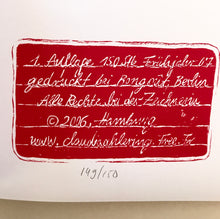 1. Auflage 150 Stk. Frühjahr 07
gedruckt bei Bongout, Berlin
Alle Rechte bei der Zeichnerin
© 2006, Hamburg
www.claudiazahlering.free.fr
149/150